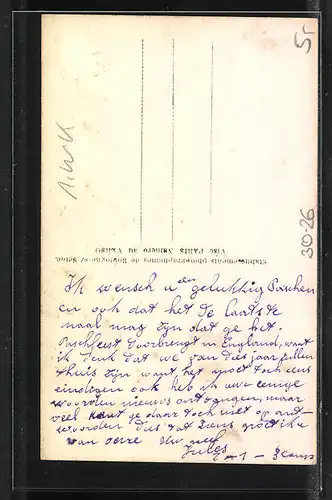 A.W.K
5r
30-26
Etablissements photographiques de Boulogne s/ Seine
Visé PARIS Numéro au VERSO
Ik wensch u een gelukkig Paschen
en ook dat het de laatste
maal mag zijn dat ge het
Paschfeest doorbrengt in England, want
ik denk dat we van dit jaar zullen
thuis zijn want het moet toch eens
eindigen ook heb ik uwe eenige
woorden nieuws ontvangen, maar
veel kunt ge daar toch niet op ant-
woorden dus tot ziens groet ik u
van verre
Jules